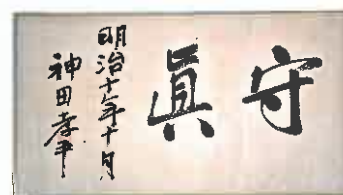 守眞
明治十年十月
神田孝平